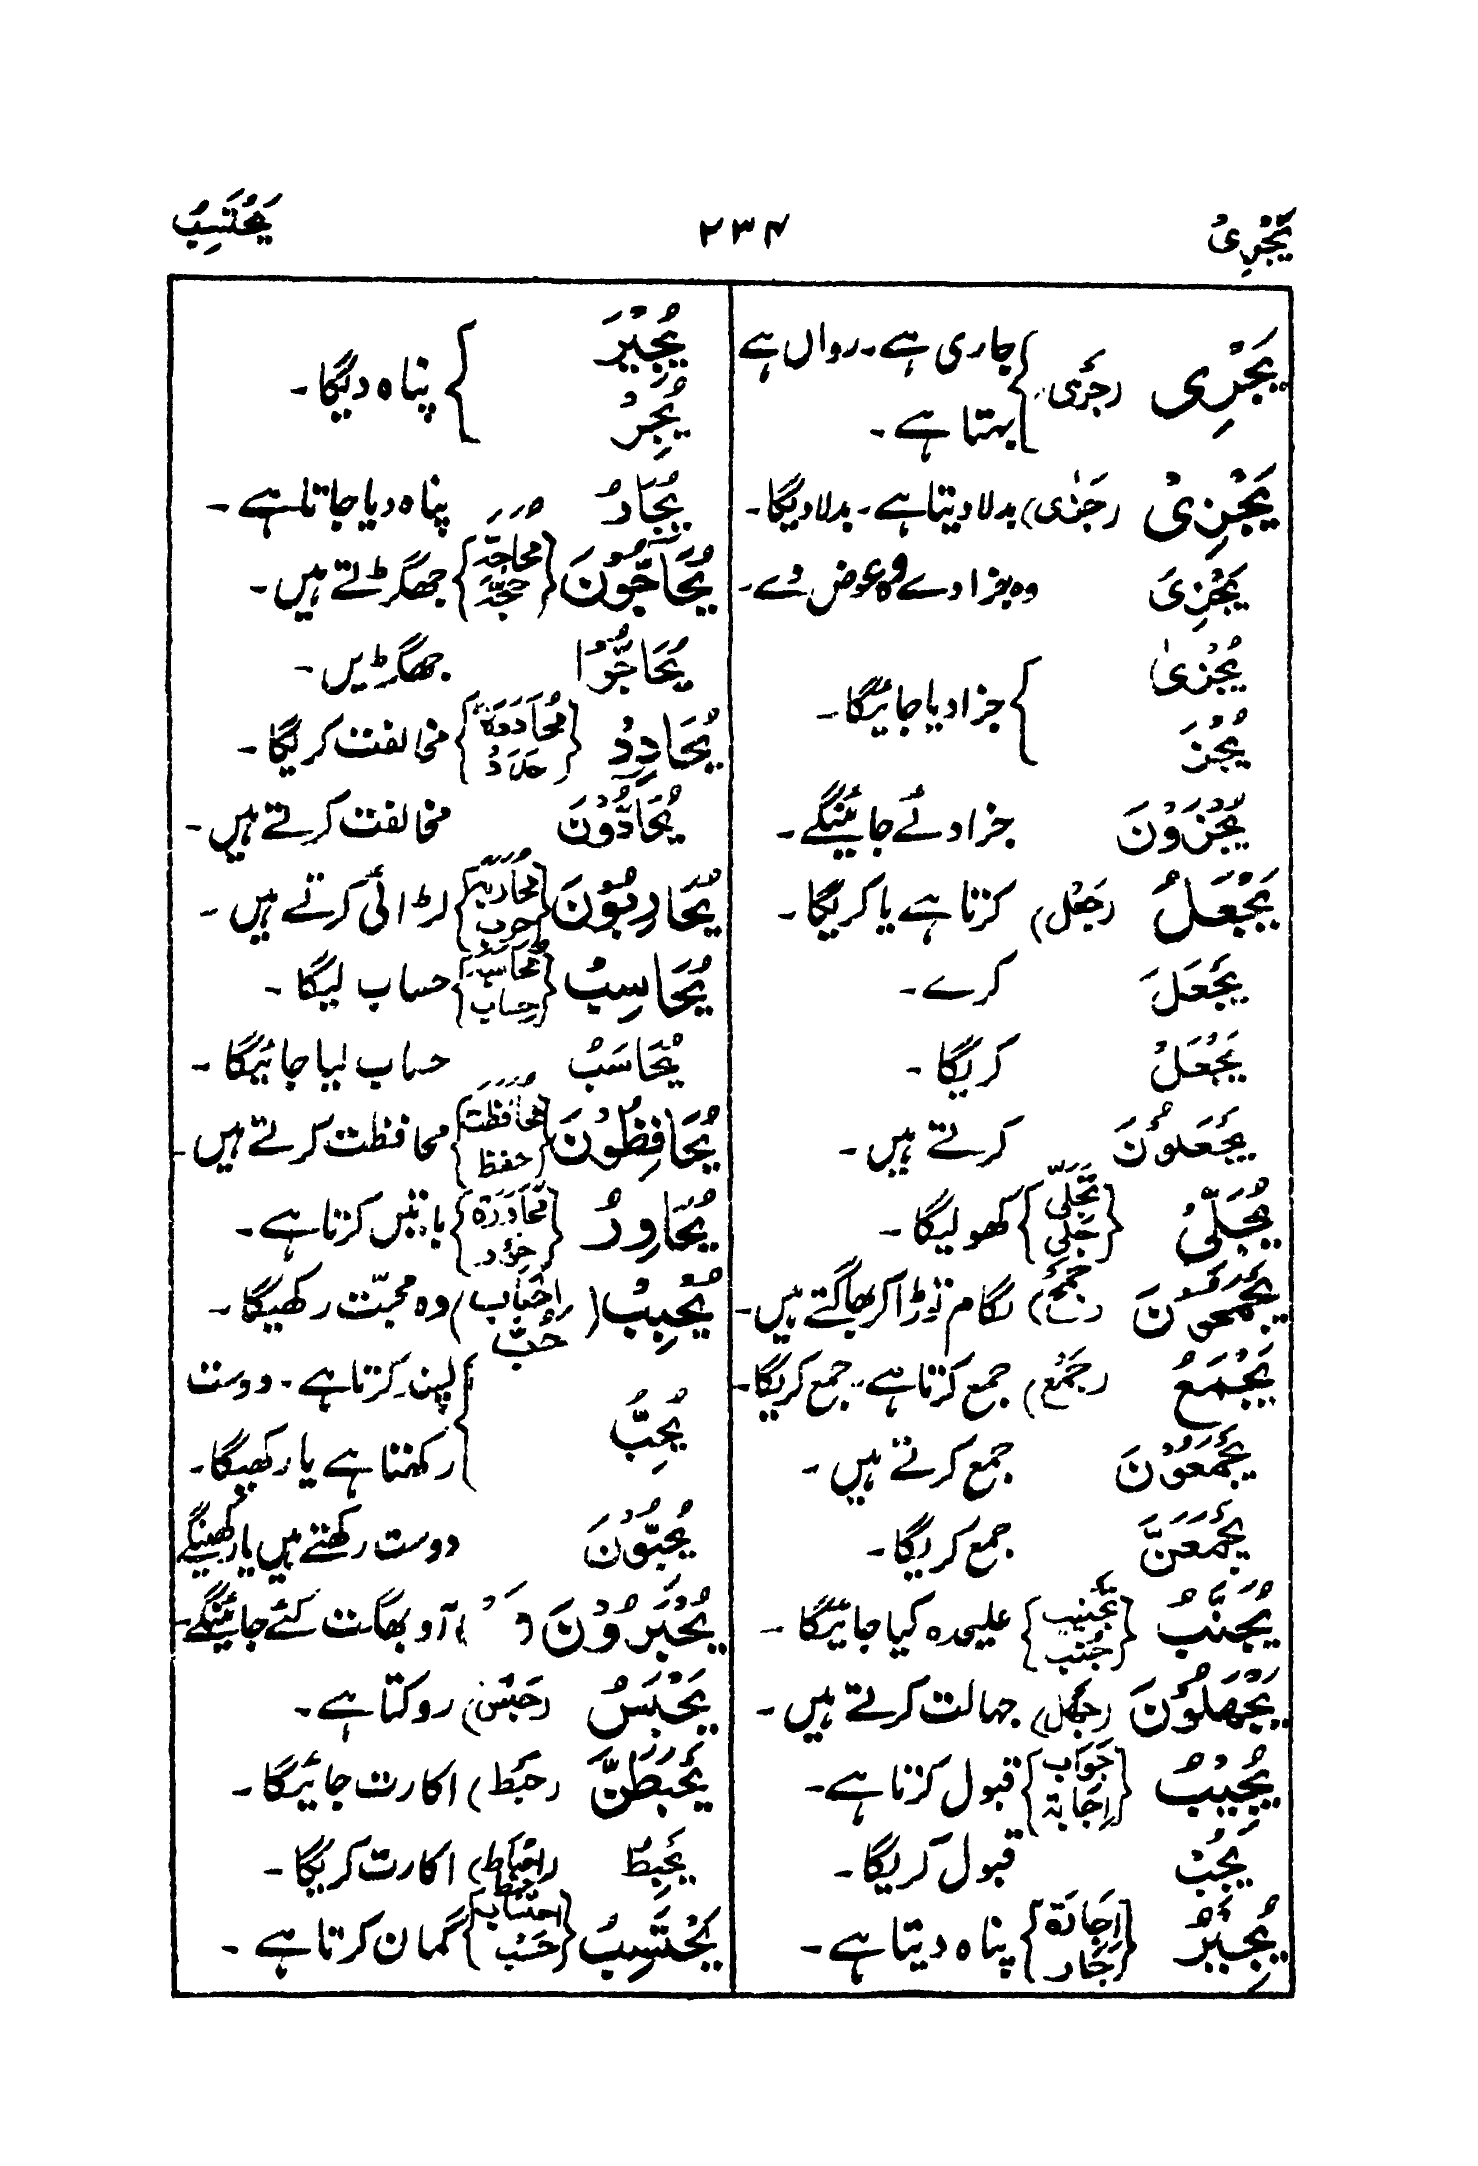 یَجْرِیْ ۲۳۴ یَحْتَسِبُ
یَجْرِی (جَرَی) جاری ہے۔ رواں ہے
بہتا ہے۔
یَجْزِیْ (جَزٰی) بدلا دیتا ہے۔ بدلا دیگا۔
یَجْزِیَ وہ جزا دے وہ عوض دے۔
یُجْزیٰ
یُجْزَ جزا دیا جائیگا۔
یُجْزَوْنَ جزا دئے جائینگے۔
یَجْعَلُ (جَعْل) کرتا ہے یا کریگا۔
یَجْعَلَ کرے۔
یَجْعَلْ کریگا۔
یَجْعَلُوْنَ کرتے ہیں۔
یُجَلِّیْ (تَجَلِّی جَلِّی) کھولیگا۔
یَجْمَحُوْنَ لگام توڑا کر بھاگتے ہیں۔
یَجْمَعُ (جَمْع) جمع کرتا ہے۔ جمع کریگا۔
یَجْمَعُوْنَ جمع کرتے ہیں۔
یَجْمَعَنَّ جمع کریگا۔
یُجَنَّبُ (تجنیب جَنْب) علیحدہ کیا جائیگا۔
یَجْهَلُوْنَ (جهل) جہالت کرتے ہیں۔
یُجِیْبُ (جَوَاب اِجَابة) قبول کرتا ہے۔
یُجِبْ قبول کریگا۔
یُجِیْرُ (اِجَارَة جَار) پناہ دیتا ہے۔
یُجِیْرَ
یُجِرْ پناہ دیگا۔
یُجَارُ پناہ دیا جاتا ہے۔
یُحَاجُّوْنَ (محاجّة حجّة) جھگڑتے ہیں۔
یُحَاجُّوْا جھگڑیں۔
یُحَادِدْ مخالفت کریگا۔
یُحَادُّوْنَ مخالفت کرتے ہیں۔
یُحَارِبُوْنَ (محاربہ حرب) لڑائی کرتے ہیں۔
یُحَاسِبُ (محاسبہ حِساب) حساب لیگا۔
یُحَاسَبُ حساب لیا جائیگا۔
یُحَافِظُوْنَ (محافظت حفظ) محافظت کرتے ہیں۔
یُحَاوِرُ باتیں کرتا ہے۔
یُحْبِبْ (اِحْبَاب حُبّ) وہ محبّت رکھیگا۔
یُحِبُّ پسند کرتا ہے۔ دوست
رکھتا ہے یا رکھیگا۔
یُحِبُّوْنَ دوست رکھتے ہیں یا رکھینگے
یُحْبَرُوْنَ آو بھاگت کئے جائینگے۔
یَحْبِسُ (حَبْس) روکتا ہے۔
یَحْبَطَنَّ (حبَط) اکارت جائیگا۔
یُحْبِطُ (احْبَاط حبط) اکارت کریگا۔
یَحْتَسِبُ (احتساب حَسْب) گمان کرتا ہے۔